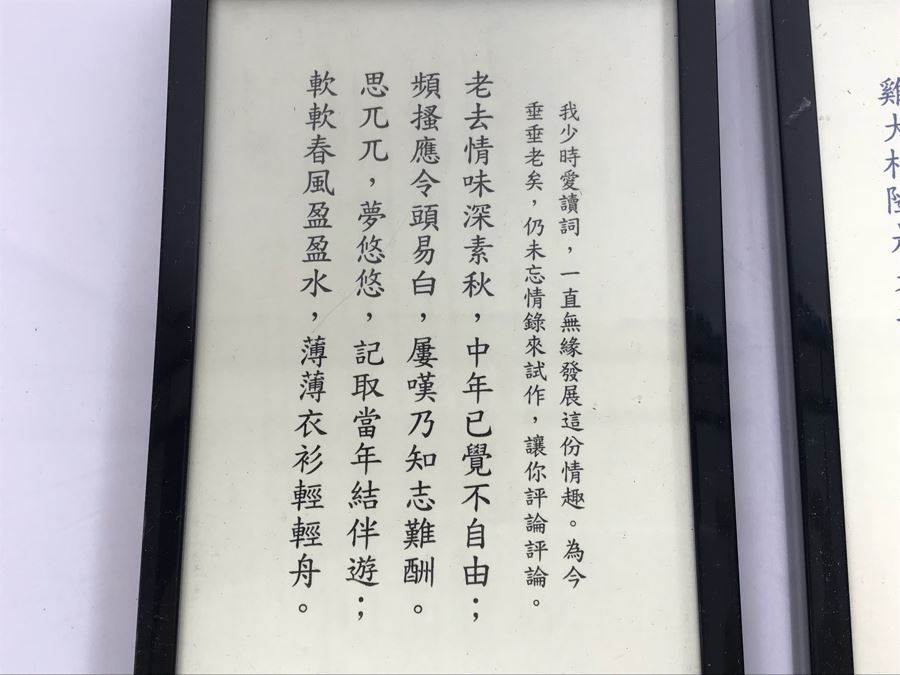 雞
我少時愛讀詞，一直無緣發展這份情趣。為今
垂垂老矣，仍未忘情錄來試作，讓你評論評論。
老去情味深素秋，中年已覺不自由；
頻搔應令頭易白，屢嘆乃知志難酬。
思兀兀，夢悠悠，記取當年結伴遊；
軟軟春風盈盈水，薄薄衣衫輕輕舟。